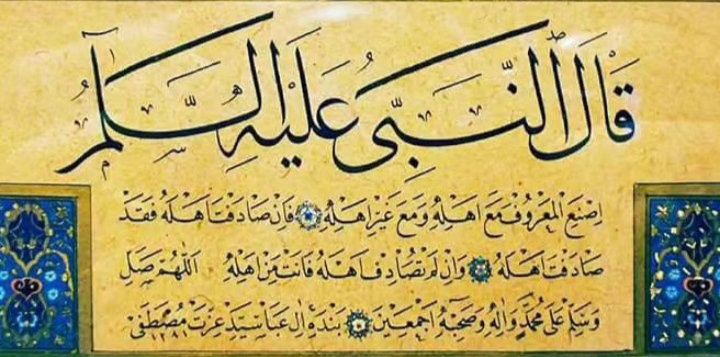 قَالَ النَّبِيُّ عَلَيْهِ السَّلَامُ
اِصْنَعِ الْمَعْرُوفَ مَعَ اَهْلِهِ وَمَعَ غَيْرِ اَهْلِهِ فَاِنْ صَادَفْتَ اَهْلَهُ فَقَدْ
صَادَفْتَ اَهْلَهُ وَاِنْ لَمْ تُصَادِفْ اَهْلَهُ فَاَنْتَ مِنْ اَهْلِهِ اَللّٰهُمَّ صَلِّ
وَسَلِّمْ عَلٰى مُحَمَّدٍ وَاٰلِهِ وَصَحْبِهِ اَجْمَعِينَ بَنْدَهٔ اٰلِ عَبَا سَيِّدْ عِزَّتْ مُصْطَفٰى